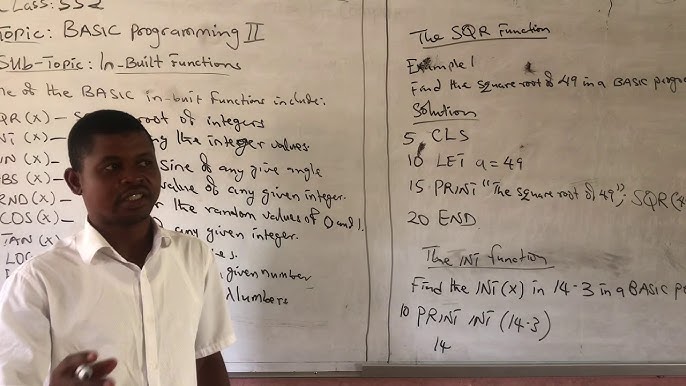 Class: SS2
Topic: BASIC programming II
Sub-Topic: In-Built Functions
of the BASIC in-buit functions include:
QR (X) — root of integers
(X) — the integer values
(X) sine of any give angle
BS (X) value of any given integer.
RND (X) — the random values of 0 and 1.
COS (X) — any given integer.
TAN (X)
LOG
given number
Numbers
The SQR Function
Example 1
Find the square root of 49 in a BASIC
Solution
5 CLS
10 LET a = 49
15 PRINT "The square root of 49"; SQR (
20 END
The INT function
Find the INT(X) in 14.3 in a BASIC
10 PRINT INT (14.3)
14